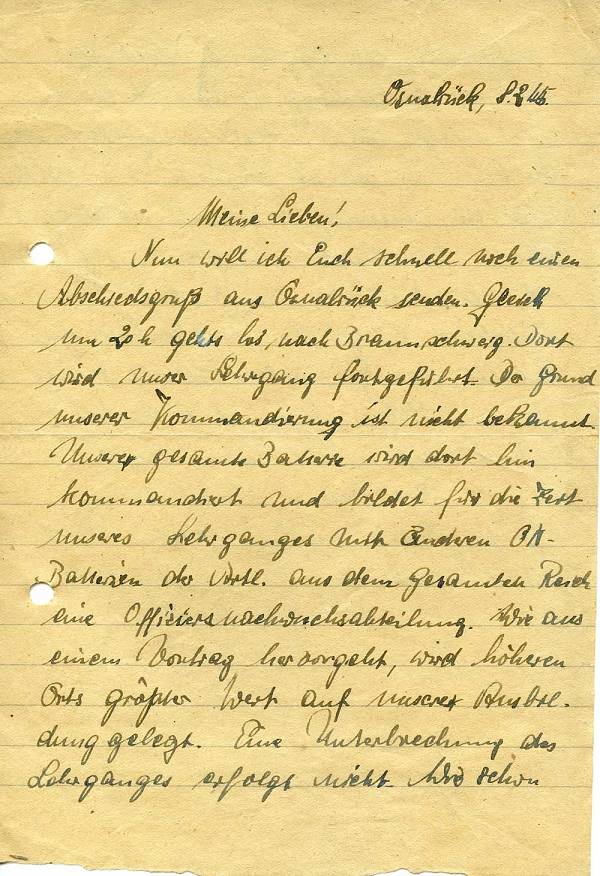 Osnabrück, 8.2.45.
Meine Lieben!
Nun will ich Euch schnell noch einen
Abschiedsgruß aus Osnabrück senden. Gleich
um 20 h gehts los, nach Braunschweig. Dort
wird unser Lehrgang fortgeführt. Der Grund
unserer Kommandierung ist nicht bekannt.
Unsere gesamte Batterie wird dort hin
kommandiert und bildet für die Zeit
unseres Lehrganges mit anderen
Batterien der Artl. aus dem gesamten Reich
eine Offiziersnachwuchsabteilung. Wie aus
einem Vortrag hervorgeht, wird höheren
Orts größter Wert auf unsere Ausbil-
dung gelegt. Eine Unterbrechung des
Lehrganges erfolgt nicht. Wie schon